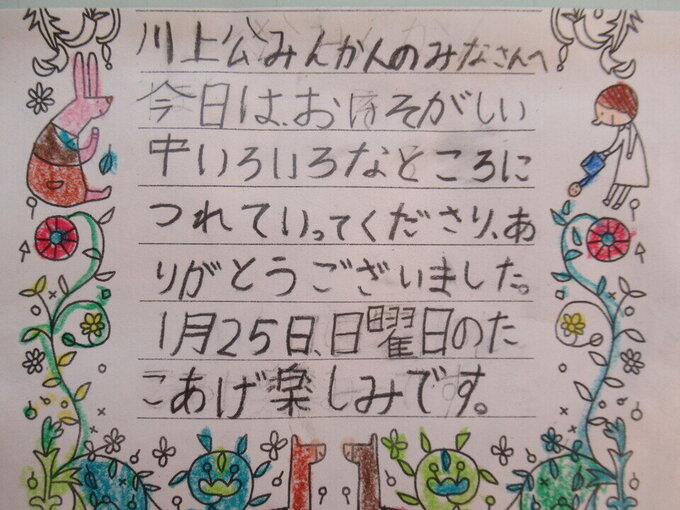 川上公みんかんのみなさんへ
今日は、おほそがしい
中いろいろなところに
つれていってくださり、あ
りがとうございました。
1月25日、日曜日のた
こあげ楽しみです。